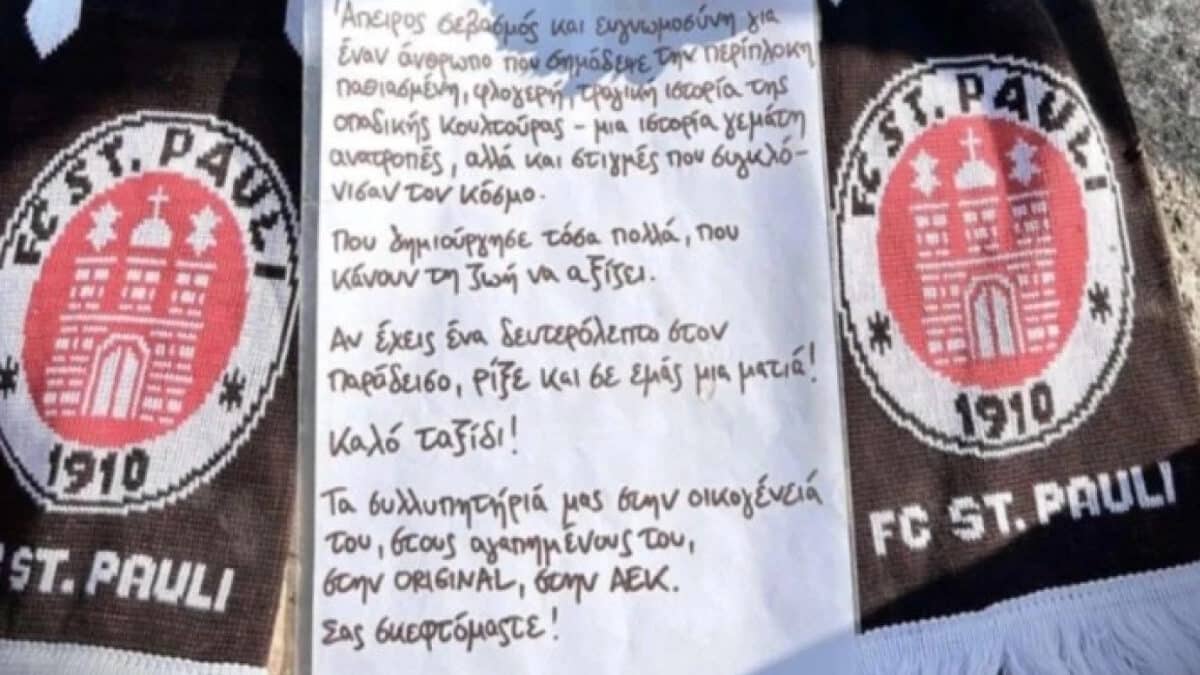 FC ST. PAULI
1910
ST. PAULI
Άπειρος σεβασμός και ευγνωμοσύνη για
έναν άνθρωπο που σημάδεψε την περίπλοκη
παθιασμένη, φλογερή, τραγική ιστορία της
οπαδικής κουλτούρας - μια ιστορία γεμάτη
ανατροπές, αλλά και στιγμές που συγκλό-
νισαν τον κόσμο.
Που δημιούργησε τόσα πολλά, που
κάνουν τη ζωή να αξίζει.
Αν έχεις ένα δευτερόλεπτο στον
παράδεισο, ρίξε και σε εμάς μια ματιά!
Καλό ταξίδι!
Τα συλλυπητήριά μας στην οικογένειά
του, στους αγαπημένους του,
στην ORIGINAL, στην ΑΕΚ.
Σας σκεφτόμαστε!
FC ST. PAULI
1910
FC ST. PAULI